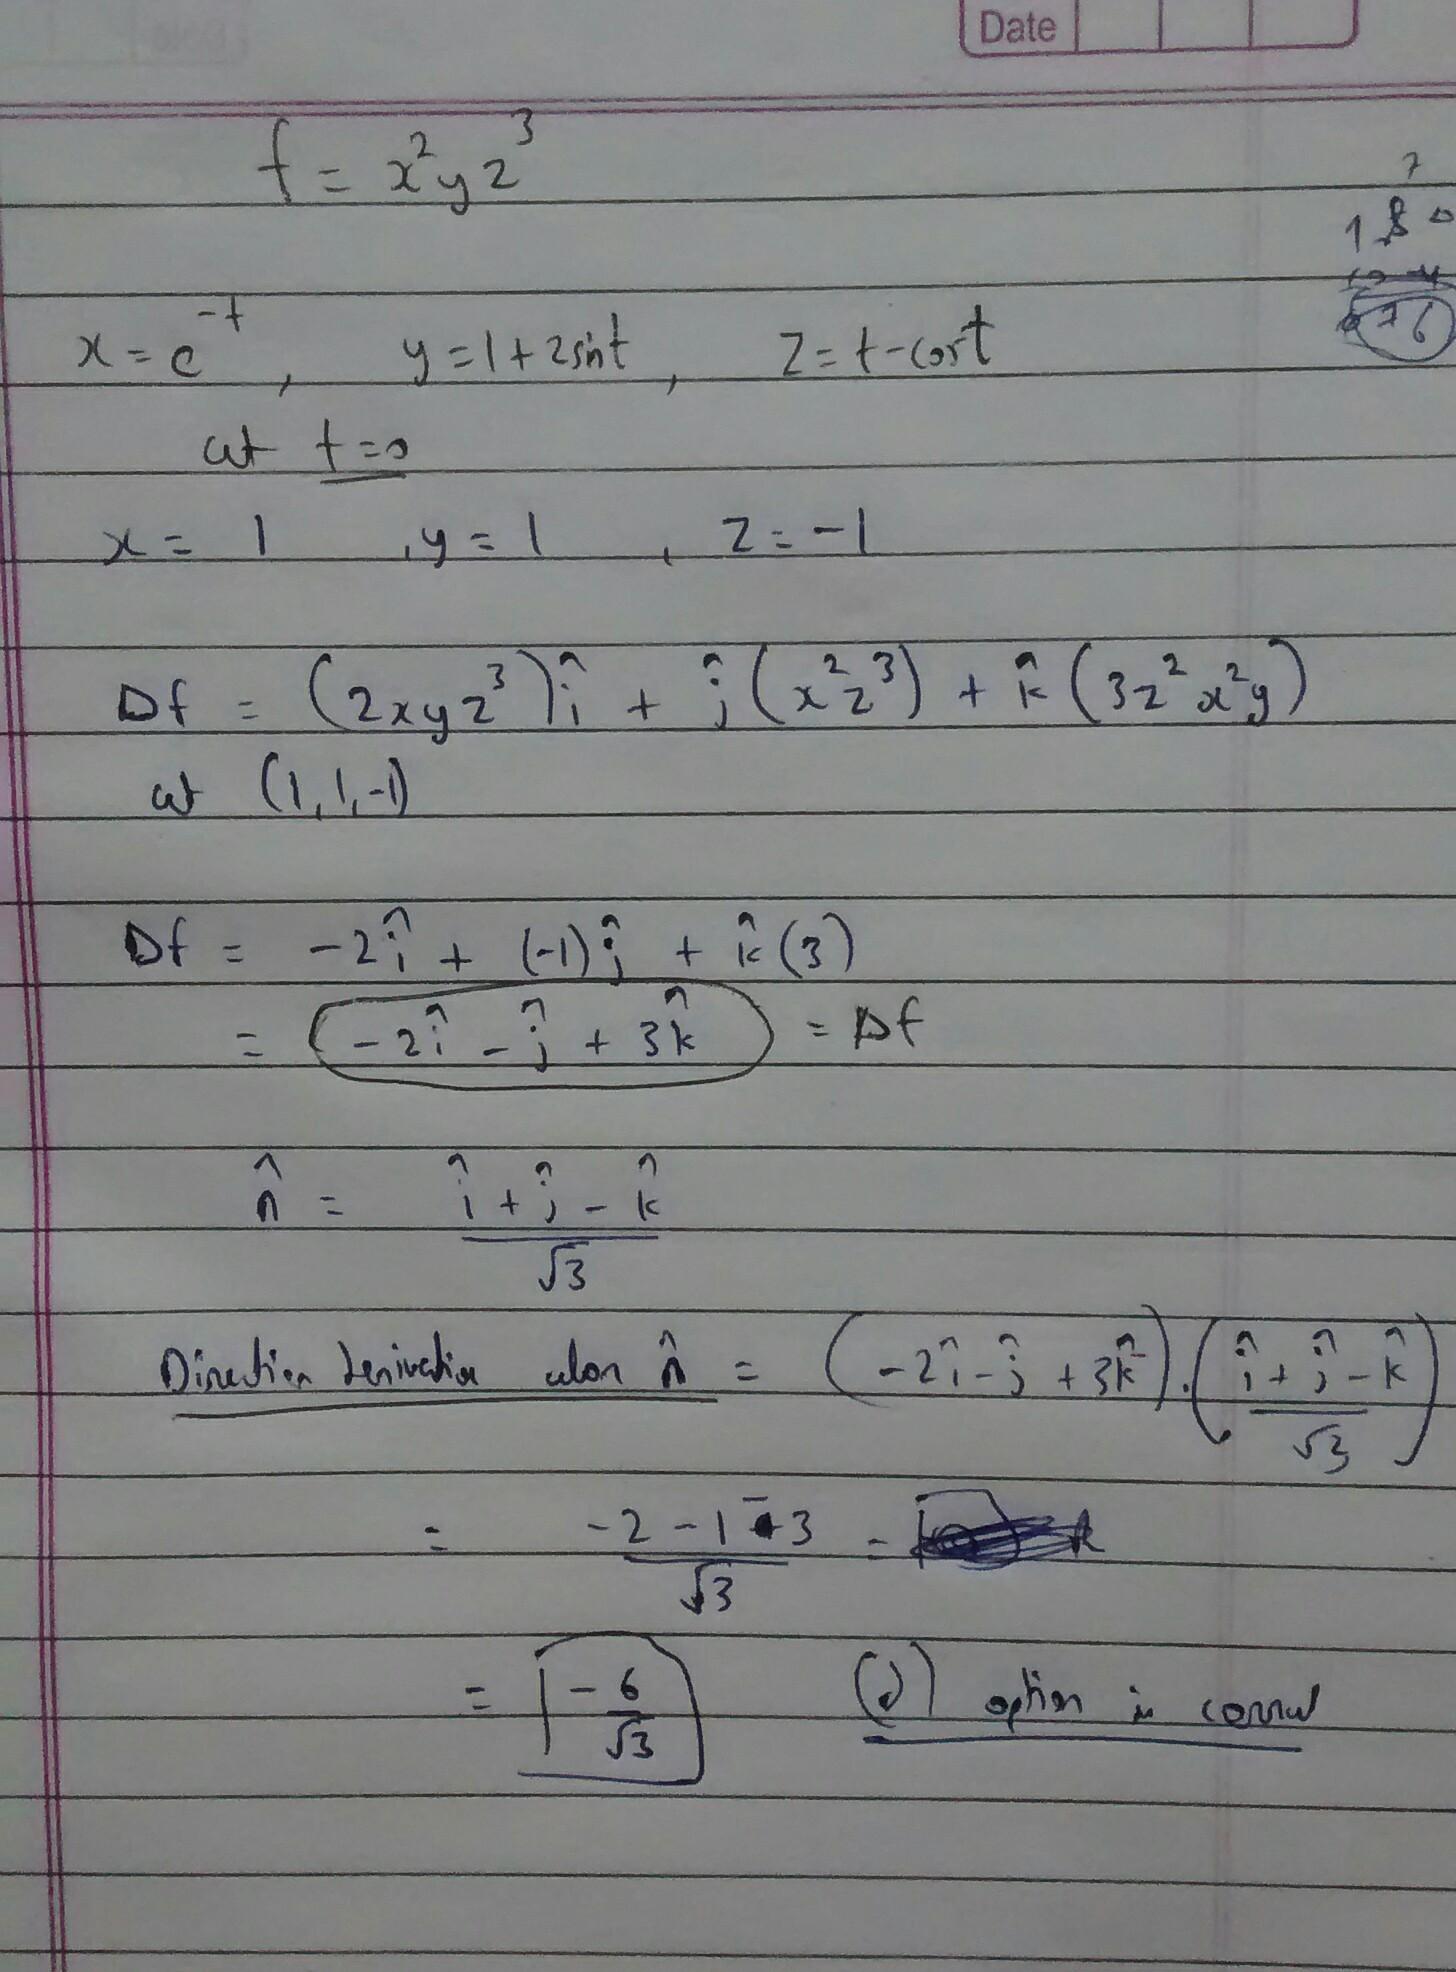 Date
f = x²yz³
7
180
76
x = e^-t , y = 1 + 2sint , z = t - cost
at t=0
x = 1 , y = 1 , z = -1
Df = (2xyz³)î + ĵ(x²z³) + k̂(3z²x²y)
at (1,1,-1)
Df = -2î + (-1)ĵ + k̂(3)
= -2î - ĵ + 3k̂ = Df
n̂ = (î + ĵ - k̂)/√3
Direction derivative alon n̂ = (-2î - ĵ + 3k̂).((î + ĵ - k̂)/√3)
= (-2 - 1 - 3)/√3 =
= -6/√3 (d) option is correct